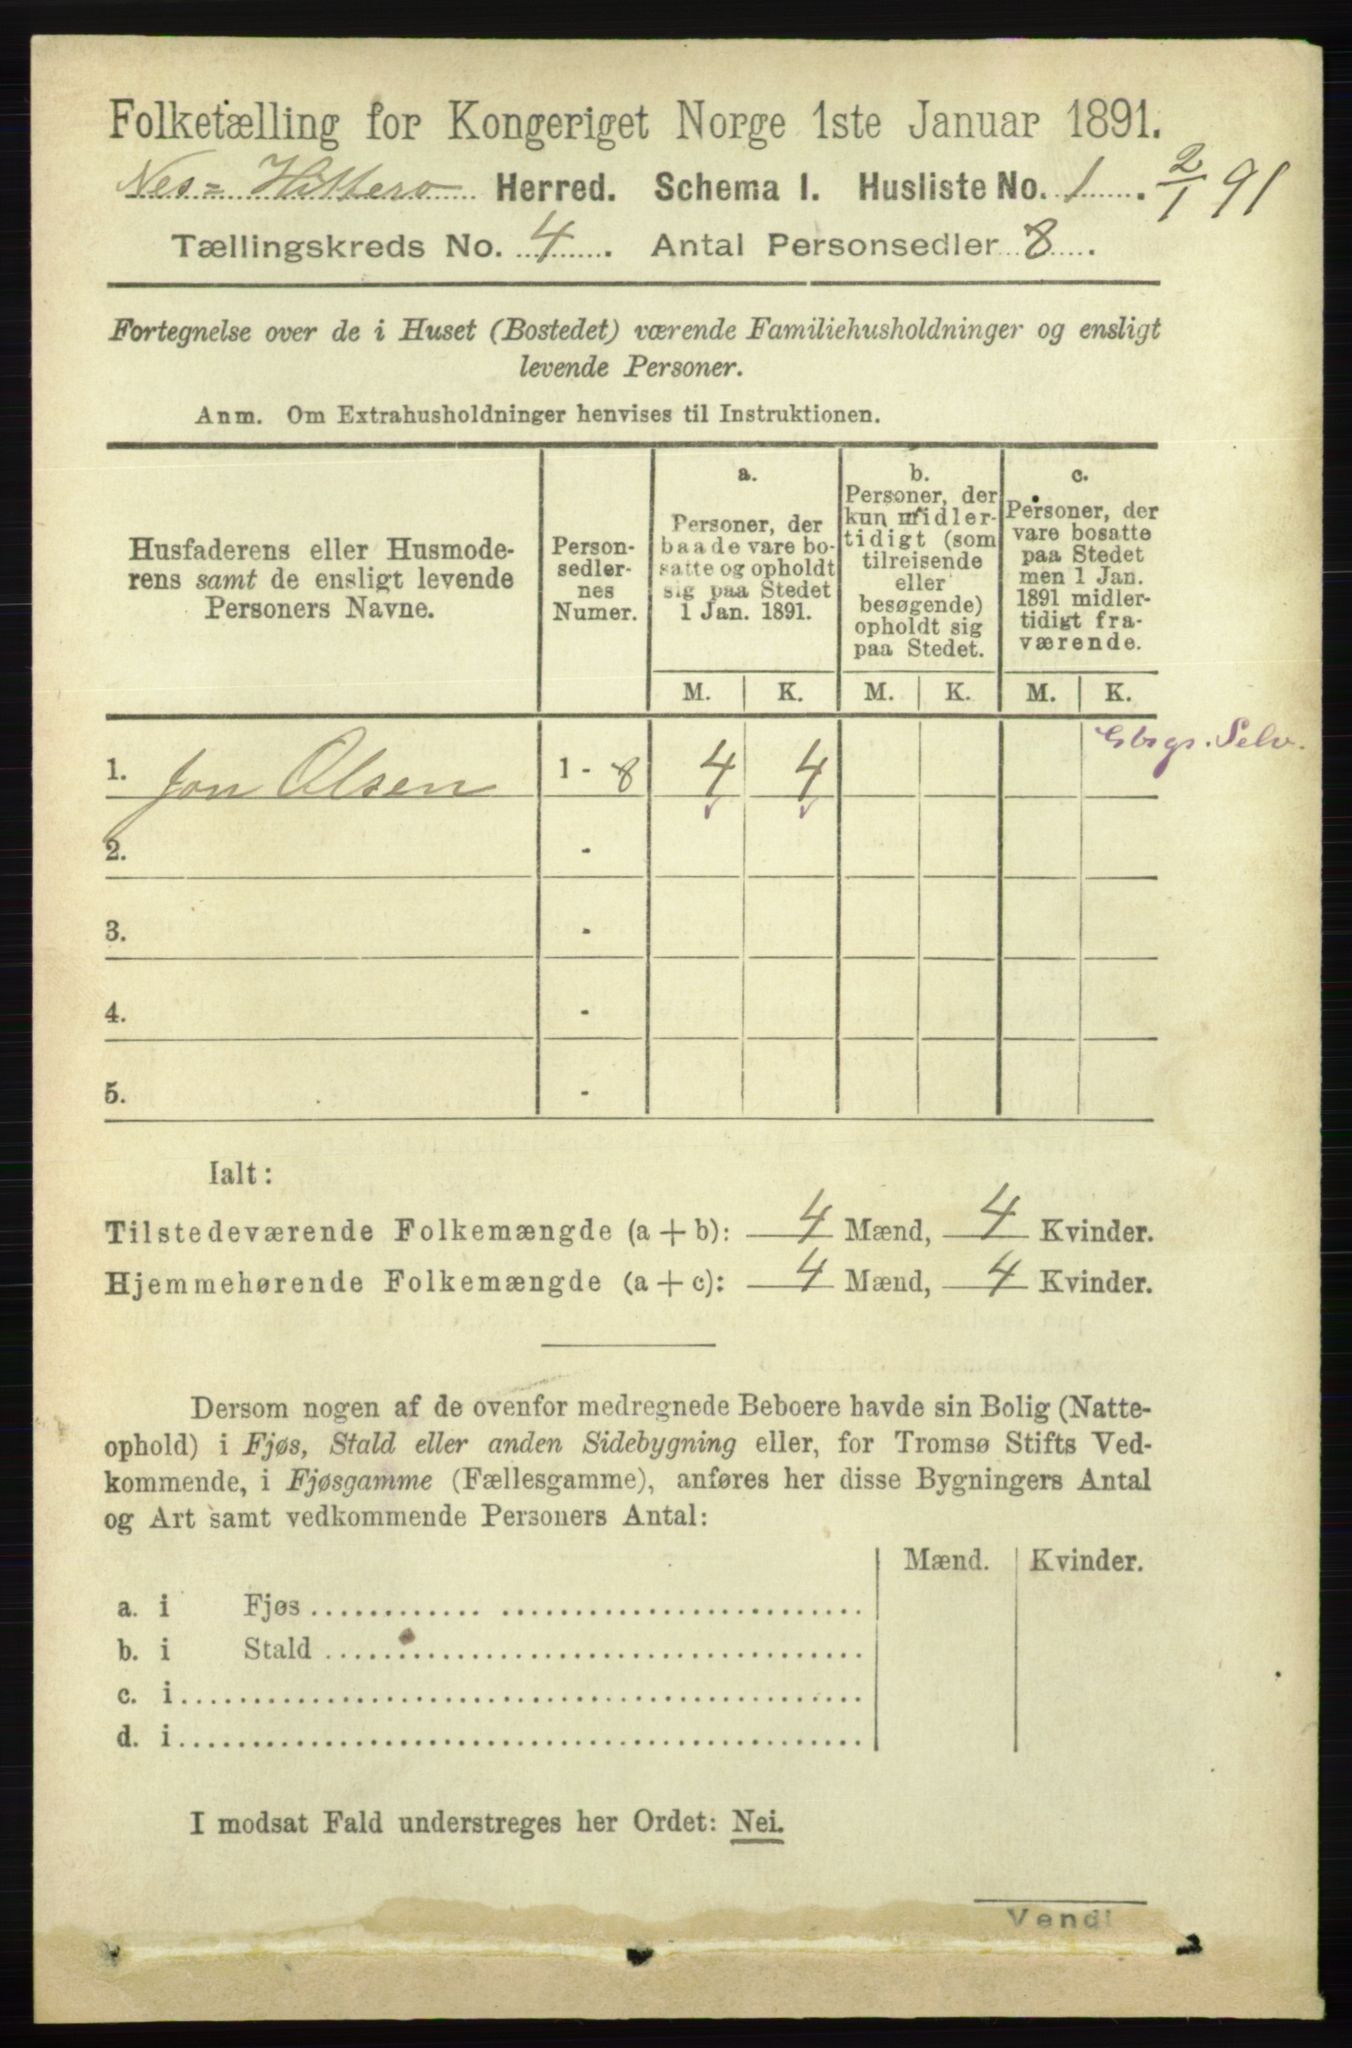 Folketælling for Kongeriget Norge 1ste Januar 1891.
Nes=Hittero Herred. Schema I. Husliste No. 1. 2/1 91
Tællingskreds No. 4. Antal Personsedler 8.
Fortegnelse over de i Huset (Bostedet) værende Familiehusholdninger og ensligt
levende Personer.
Anm. Om Extrahusholdninger henvises til Instruktionen.
Husfaderens eller Husmode-
rens samt de ensligt levende
Personers Navne.
Person-
sedler-
nes
Numer.
a.
Personer, der
baade vare bo-
satte og opholdt
sig paa Stedet
1 Jan. 1891.
b.
Personer, der
kun midler-
tidigt (som
tilreisende
eller
besøgende)
opholdt sig
paa Stedet.
c.
Personer, der
vare bosatte
paa Stedet
men 1 Jan.
1891 midler-
tidigt fra-
værende.
M. K. M. K. M. K.
1. Jon Olsen 1 - 8 4 4 Gbrgs. Selv.
2. -
3. -
4. -
5. -
Ialt:
Tilstedeværende Folkemængde (a + b): 4 Mænd, 4 Kvinder.
Hjemmehørende Folkemængde (a + c): 4 Mænd, 4 Kvinder.
Dersom nogen af de ovenfor medregnede Beboere havde sin Bolig (Natte-
ophold) i Fjøs, Stald eller anden Sidebygning eller, for Tromsø Stifts Ved-
kommende, i Fjøsgamme (Fællesgamme), anføres her disse Bygningers Antal
og Art samt vedkommende Personers Antal:
Mænd. Kvinder.
a. i Fjøs
b. i Stald
c. i
d. i
I modsat Fald understreges her Ordet: Nei.
Vend!